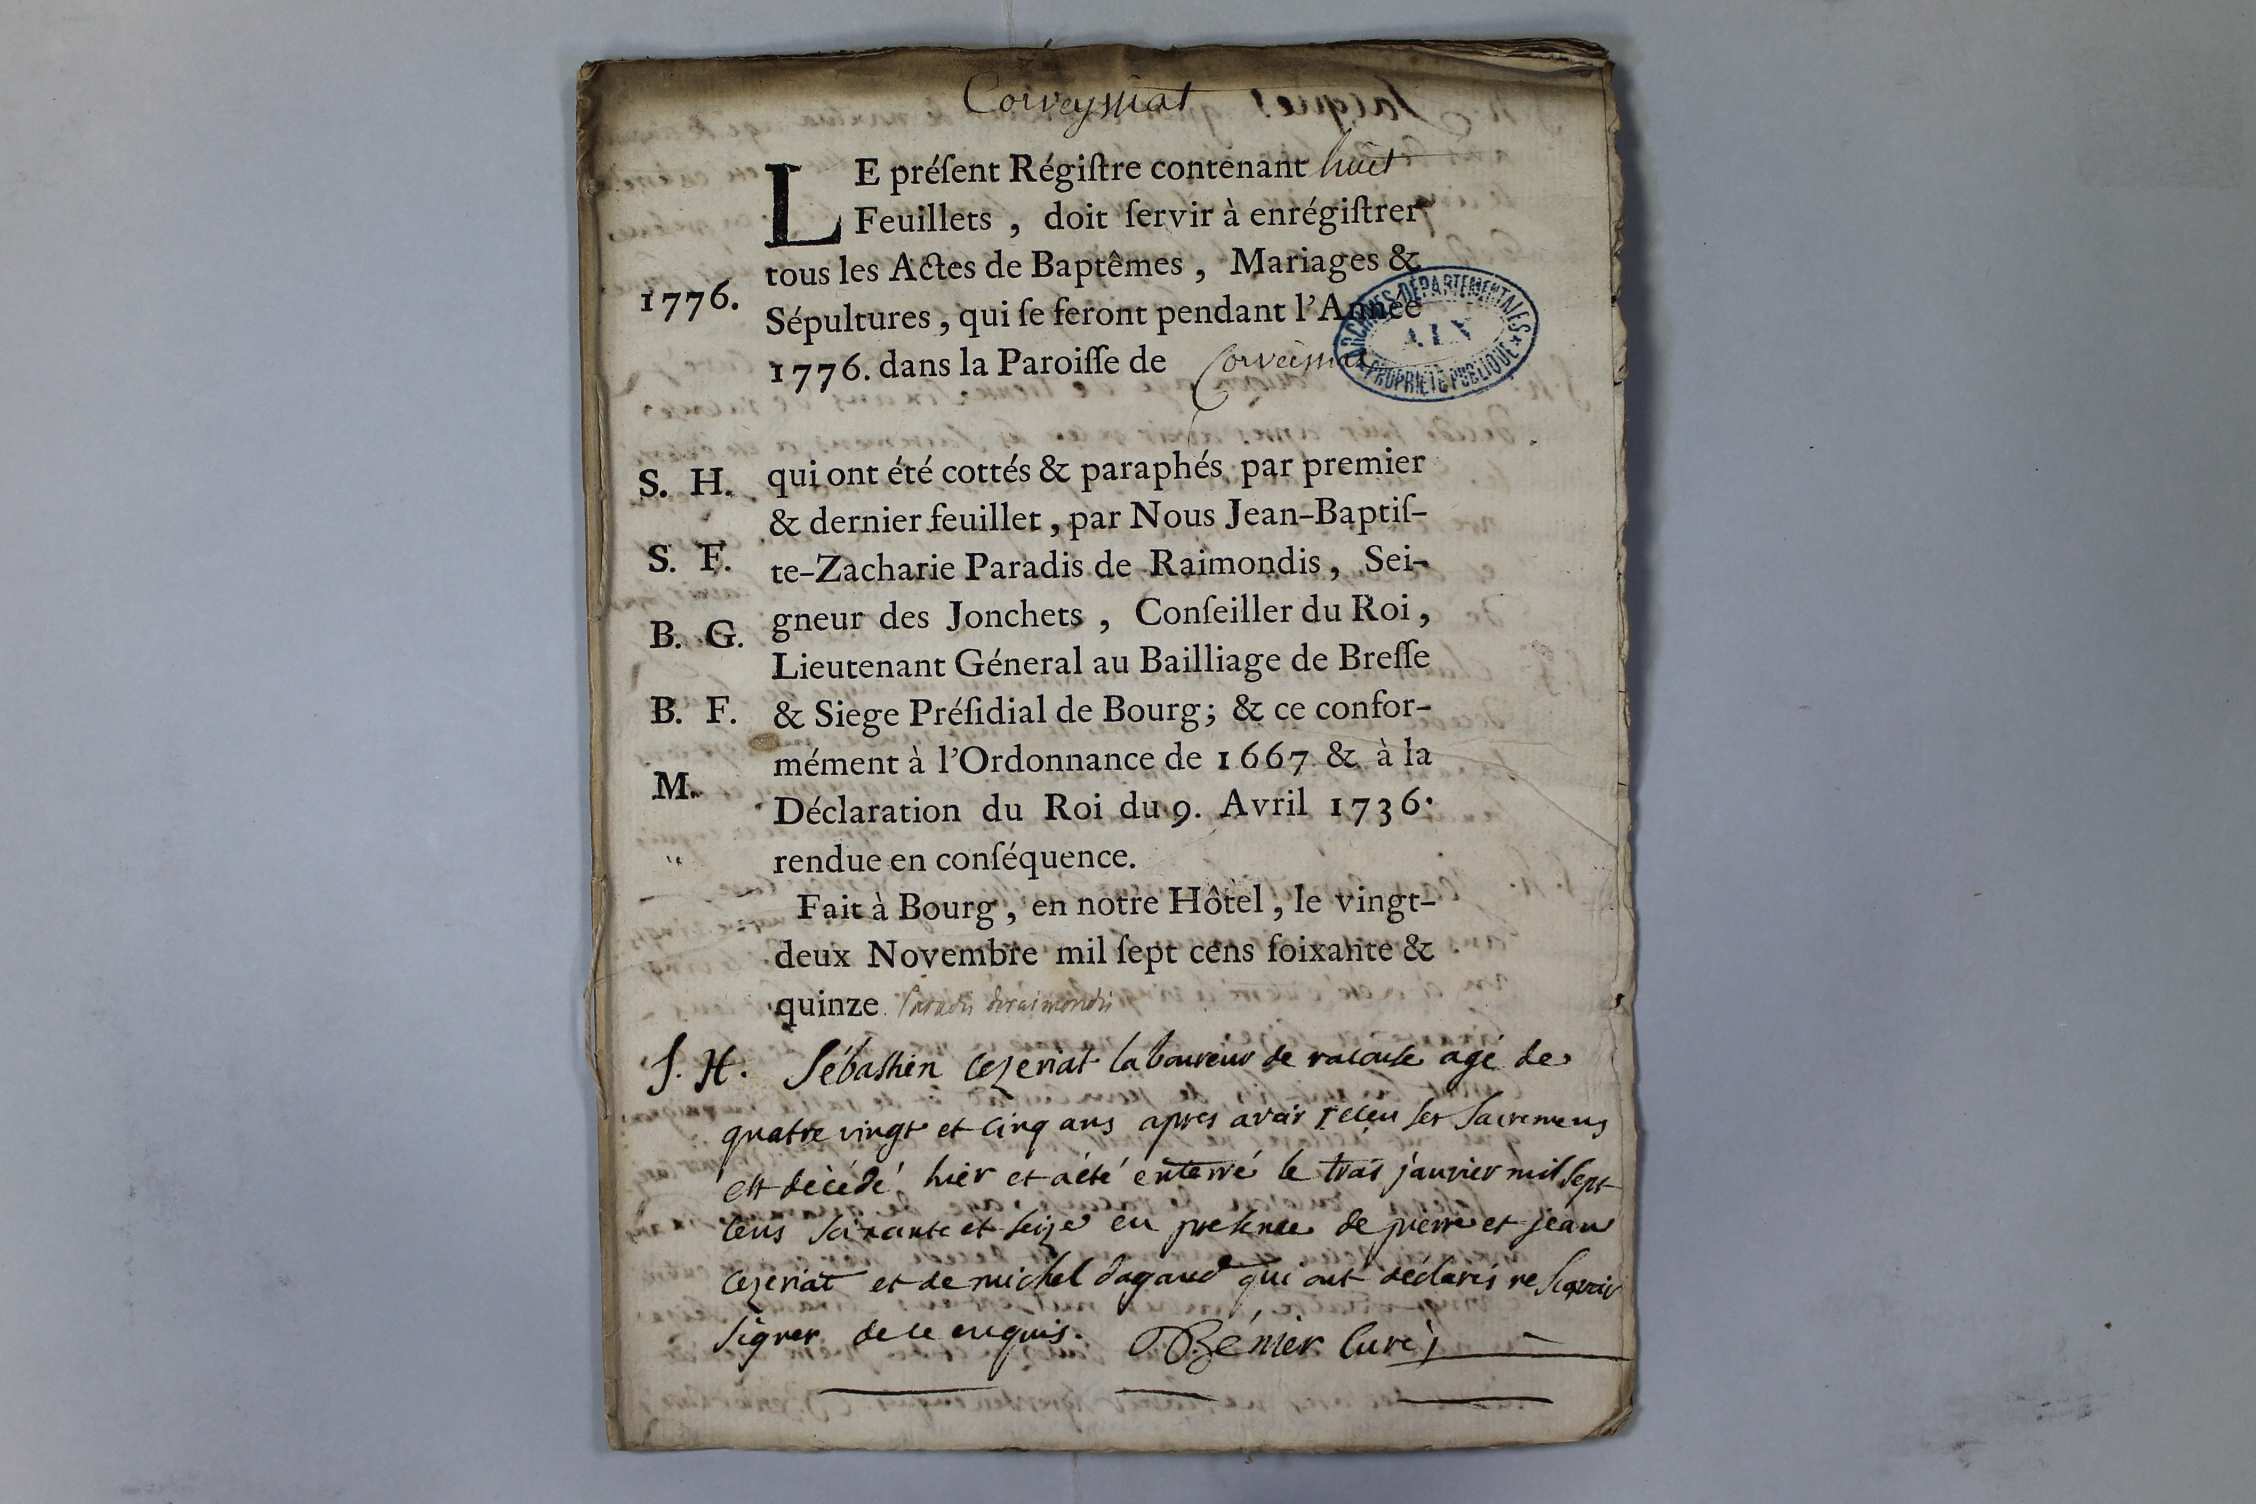 Corveyssiat
LE préſent Régiſtre contenant huit
Feuillets, doit ſervir à enrégiſtrer
tous les Actes de Baptêmes, Mariages &
1776.
Sépultures, qui ſe feront pendant l'Année
1776. dans la Paroiſſe de Corveissiat
ARCHIVES DÉPARTEMENTALES
AIN
PROPRIÉTÉ PUBLIQUE
S. H. qui ont été cottés & paraphés par premier
& dernier feuillet, par Nous Jean-Baptiſ-
S. F. te-Zacharie Paradis de Raimondis, Sei-
B. G. gneur des Jonchets, Conſeiller du Roi,
Lieutenant Géneral au Bailliage de Breſſe
B. F. & Siege Préſidial de Bourg; & ce confor-
mément à l'Ordonnance de 1667 & à la
M. Déclaration du Roi du 9. Avril 1736.
rendue en conſéquence.
Fait à Bourg, en notre Hôtel, le vingt-
deux Novembre mil ſept cens ſoixante &
quinze Paradis deraimondis
S. H. Sébastien cezeriat laboureur de racouse agé de
quatre vingt et cinq ans apres avoir reçeu ses sacremens
est décédé hier et a été enterré le trois janvier mil sept
cens soixante et seize en presence de pierre et jean
cezeriat et de michel dagaud qui ont déclarés ne sçavoir
signer de ce enquis. Bénier Curé